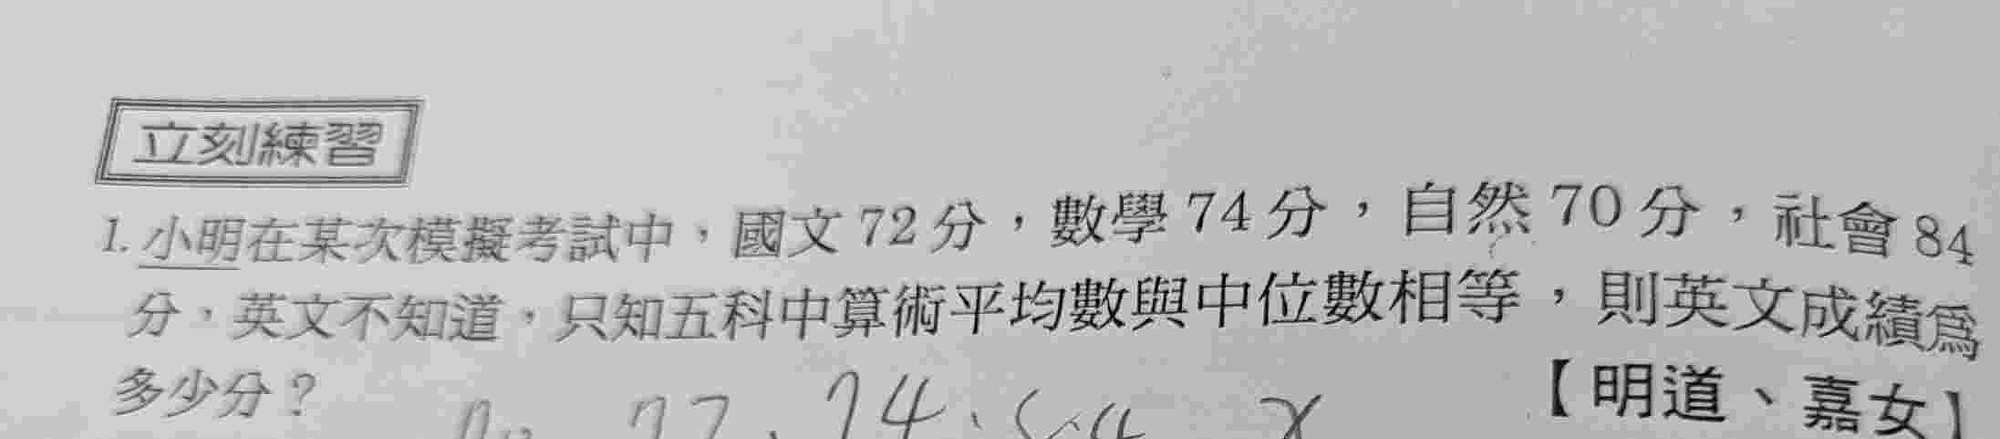 立刻練習
1. 小明在某次模擬考試中，國文 72 分，數學 74 分，自然 70 分，社會 84
分，英文不知道，只知五科中算術平均數與中位數相等，則英文成績為
多少分？ 【明道、嘉女】
72、74、84 x